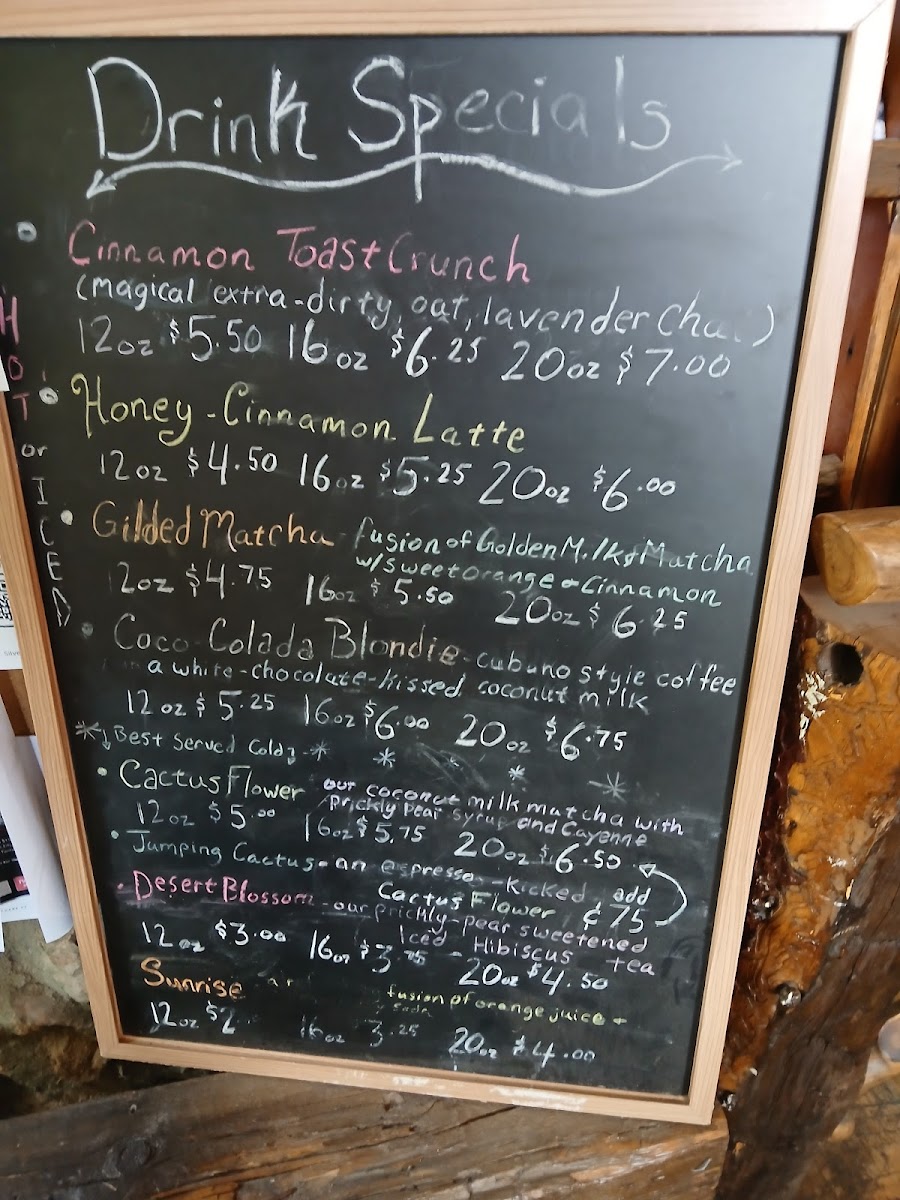 Drink Specials
HOT or ICED
Cinnamon Toast Crunch
(magical extra-dirty, oat, lavender
12oz $5.50 16oz $6.25 20oz $7.00
Honey-Cinnamon Latte
12oz $4.50 16oz $5.25 20oz $6.00
Gilded Matcha fusion of Golden Milk & Matcha
w/ sweet orange & Cinnamon
12oz $4.75 16oz $5.50 20oz $6.25
Coco-Colada Blondie - cubano style coffee
a white-chocolate-kissed, coconut milk
12oz $5.25 16oz $6.00 20oz $6.75
Best Served Cold
Cactus Flower our coconut milk matcha with
prickly pear syrup and Cayenne
12oz $5.00 16oz $5.75 20oz $6.50
Jumping Cactus - an espresso-kicked, add
Cactus Flower ¢75
Desert Blossom - our prickly-pear sweetened
Iced Hibiscus tea
12oz $3.00 16oz $3.75 20oz $4.50
Sunrise
fusion of orange juice +
12oz $2 16oz 3.25 20oz $4.00